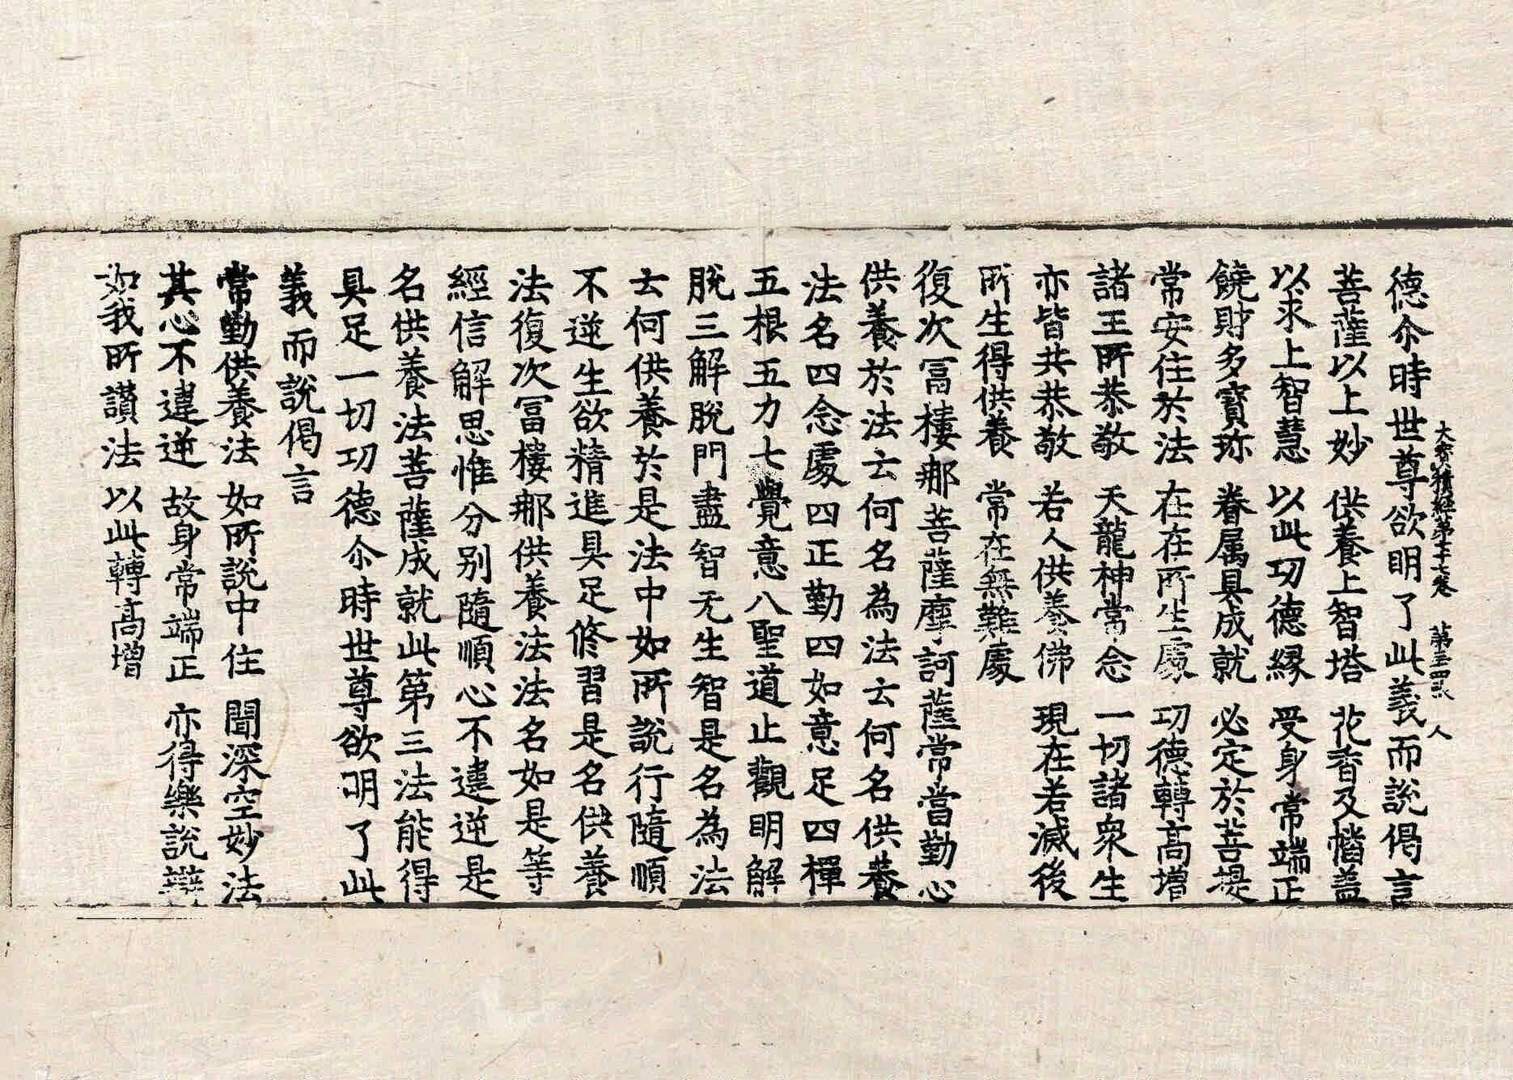 大寶積經第七十七卷 人
德尒時世尊欲明了此義而說偈言
菩薩以上妙 供養上智塔 花香及幡蓋
以求上智慧 以此功德緣 受身常端正
饒財多寶珎 眷属具成就 必定於菩提
常安住於法 在在所生處 功德轉高增
諸王所恭敬 天龍神常念 一切諸衆生
亦皆共恭敬 若人供養佛 現在若滅後
所生得供養 常在無難處
復次冨樓那菩薩摩訶薩常當勤心
供養於法云何名為法云何名供養
法名四念處四正勤四如意足四禪
五根五力七覺意八聖道止觀明解
脫三解脫門盡智无生智是名為法
云何供養於是法中如所說行隨順
不逆生欲精進具足修習是名供養
法復次冨樓那供養法法名如是等
經信解思惟分別隨順心不違逆是
名供養法菩薩成就此第三法能得
具足一切功德尒時世尊欲明了此
義而說偈言
常勤供養法 如所說中住 聞深空妙法
其心不違逆 故身常端正 亦得樂說辯
如我所讃法 以此轉高增